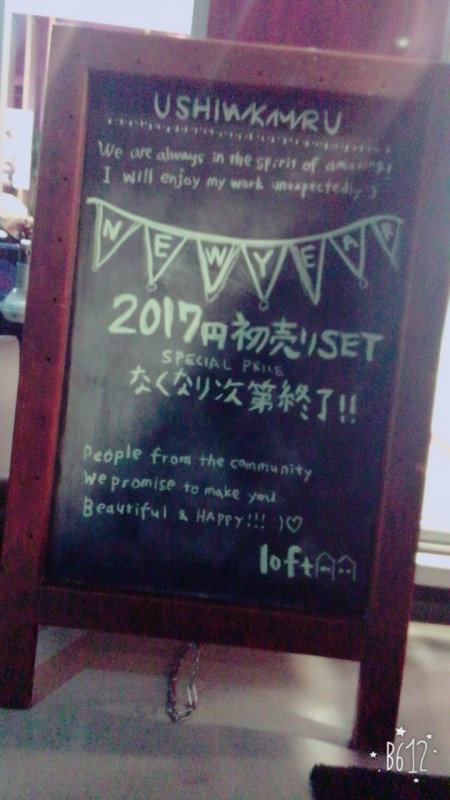 USHIWAKAMARU
We are always in the spirit of amazing!
I will enjoy my work unexpectedly :)
NEW YEAR
2017円初売りSET
SPECIAL PRICE
なくなり次第終了!!
People from the community
We promise to make you
Beautiful & HAPPY!!! :)♡
loft
B612